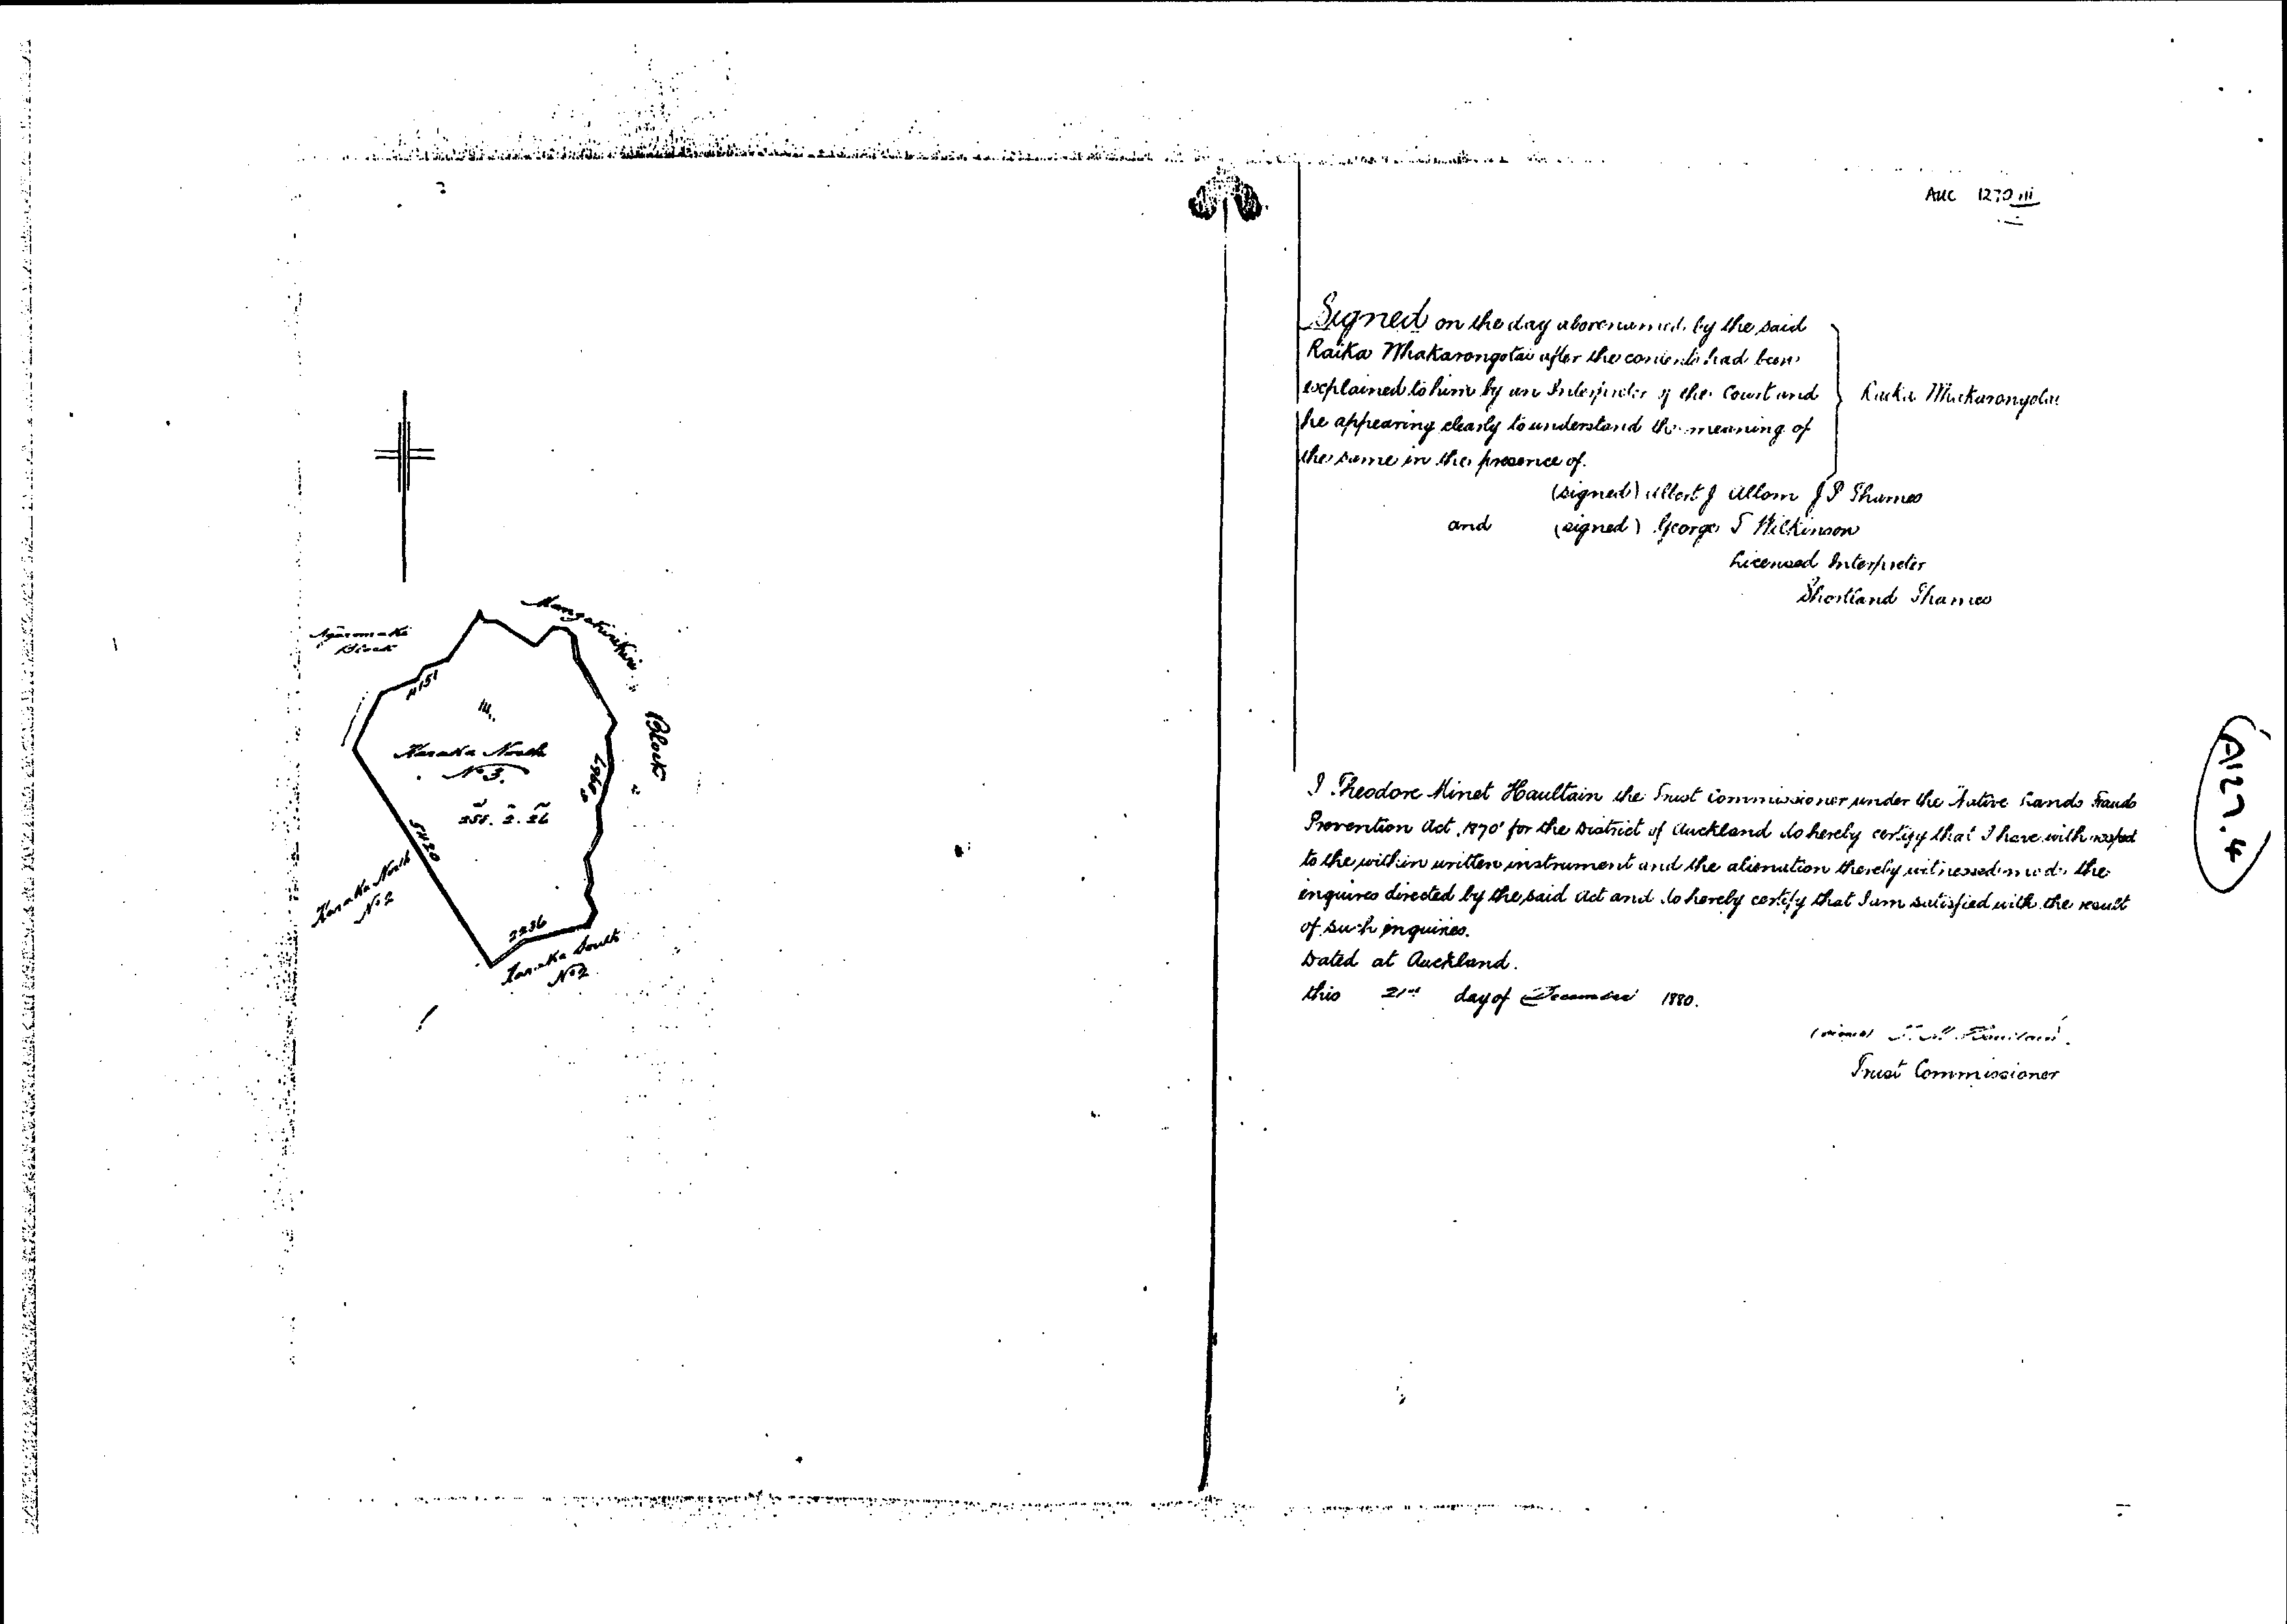 AUC 1270 iii
Ngaromaki
Block
Mangakirikiri
Block
4151
III
Karaka North
No 3.
a r p
255. 2. 26
5420
Karaka North
No 2
2236
Karaka South
No 2
Signed on the day abovenamed by the said
Raika Whakarongotai after the contents had been
explained to him by an Interpreter of the Court and
he appearing clearly to understand the meaning of
the same in the presence of.
Raika Whakarongotai
(signed) Albert J Allom J P Thames
and (signed) George T Wilkinson
Licensed Interpreter
Shortland Thames
I Theodore Minet Haultain the Trust Commissioner under the Native Lands Frauds
Prevention Act, 1870' for the District of Auckland do hereby certify that I have with respect
to the within written instrument and the alienation thereby witnessed made the
enquires directed by the said Act and do hereby certify that I am satisfied with the result
of such enquires.
Dated at Auckland.
this 21st day of December 1880.
(signed) T. M. Haultain.
Trust Commissioner
A127.4